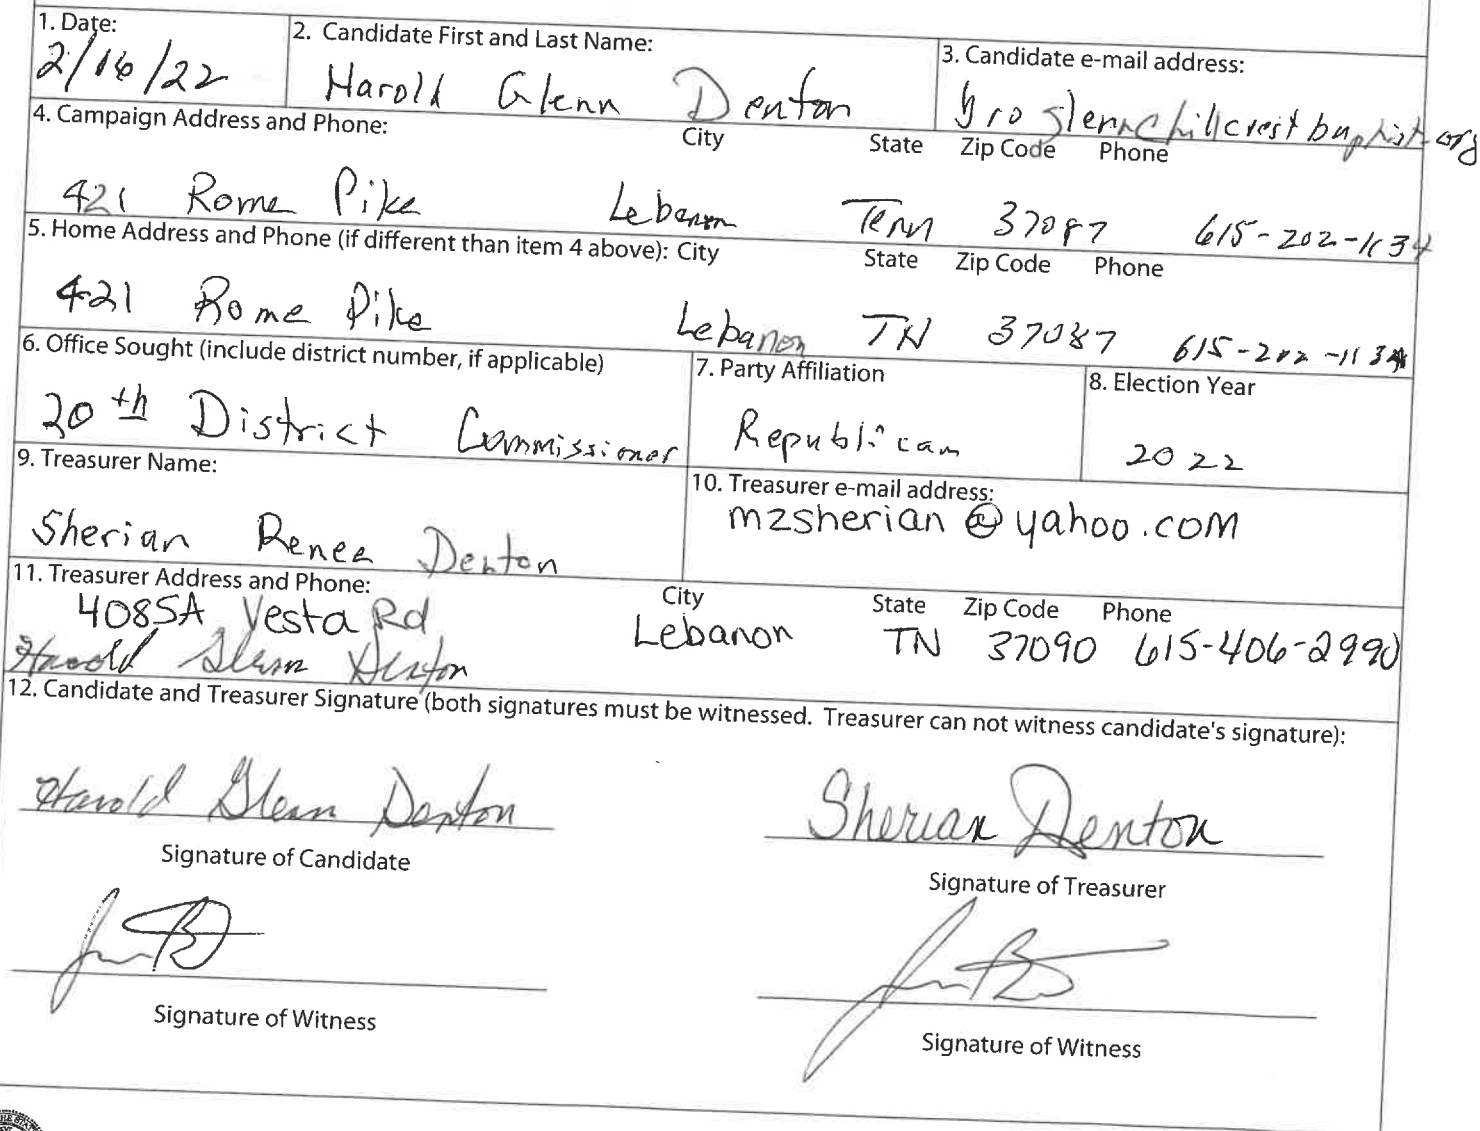 1. Date:
2/16/22
2. Candidate First and Last Name:
Harold Glenn Denton
3. Candidate e-mail address:
4. Campaign Address and Phone: City State Zip Code Phone
421 Rome Pike Lebanon Tenn 37087 615-202-1134
5. Home Address and Phone (if different than item 4 above): City State Zip Code Phone
421 Rome Pike Lebanon TN 37087 615-202-1134
6. Office Sought (include district number, if applicable)
20th District Commissioner
7. Party Affiliation
Republican
8. Election Year
2022
9. Treasurer Name:
Sherian Renee Denton
10. Treasurer e-mail address:
mzsherian@yahoo.com
11. Treasurer Address and Phone: City State Zip Code Phone
4085A Vesta Rd Lebanon TN 37090 615-406-2990
Harold Glenn Denton
12. Candidate and Treasurer Signature (both signatures must be witnessed. Treasurer can not witness candidate's signature):
Harold Glenn Denton
Signature of Candidate
Sherian Denton
Signature of Treasurer
Signature of Witness
Signature of Witness